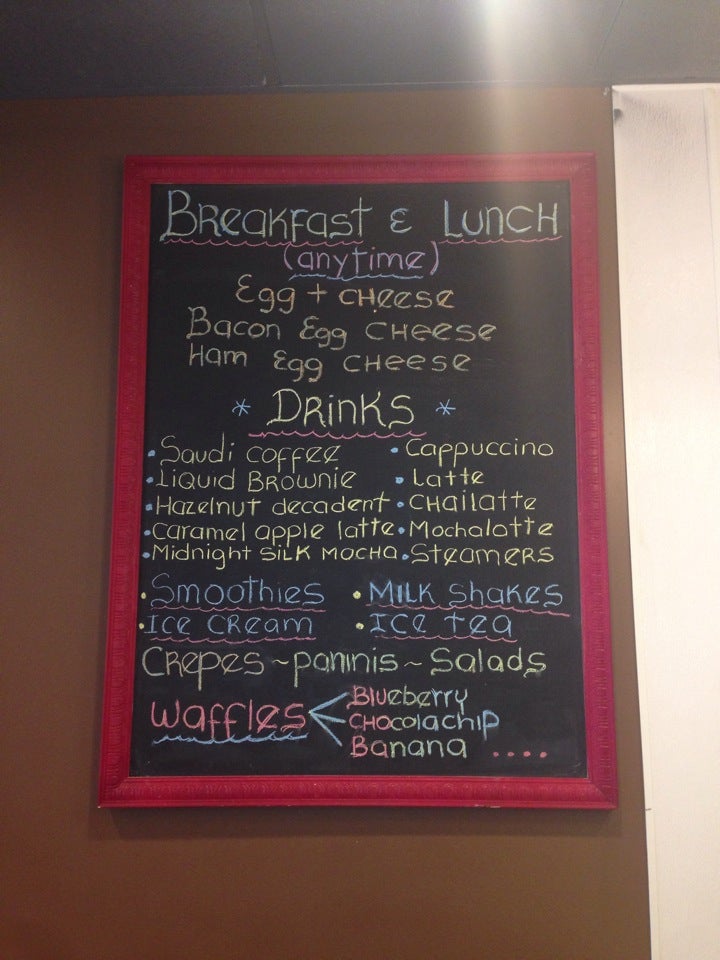 Breakfast & Lunch
(anytime)
Egg + cheese
Bacon Egg cheese
Ham Egg cheese
* Drinks *
• Saudi coffee • Cappuccino
• Liquid Brownie • Latte
• Hazelnut decadent • CHailatte
• Caramel apple latte • Mochalatte
• Midnight silk mocha • Steamers
• Smoothies • Milk shakes
• Ice cream • Ice tea
Crepes ~ paninis ~ Salads
Waffles < Blueberry
CHocolachip
Banana ....